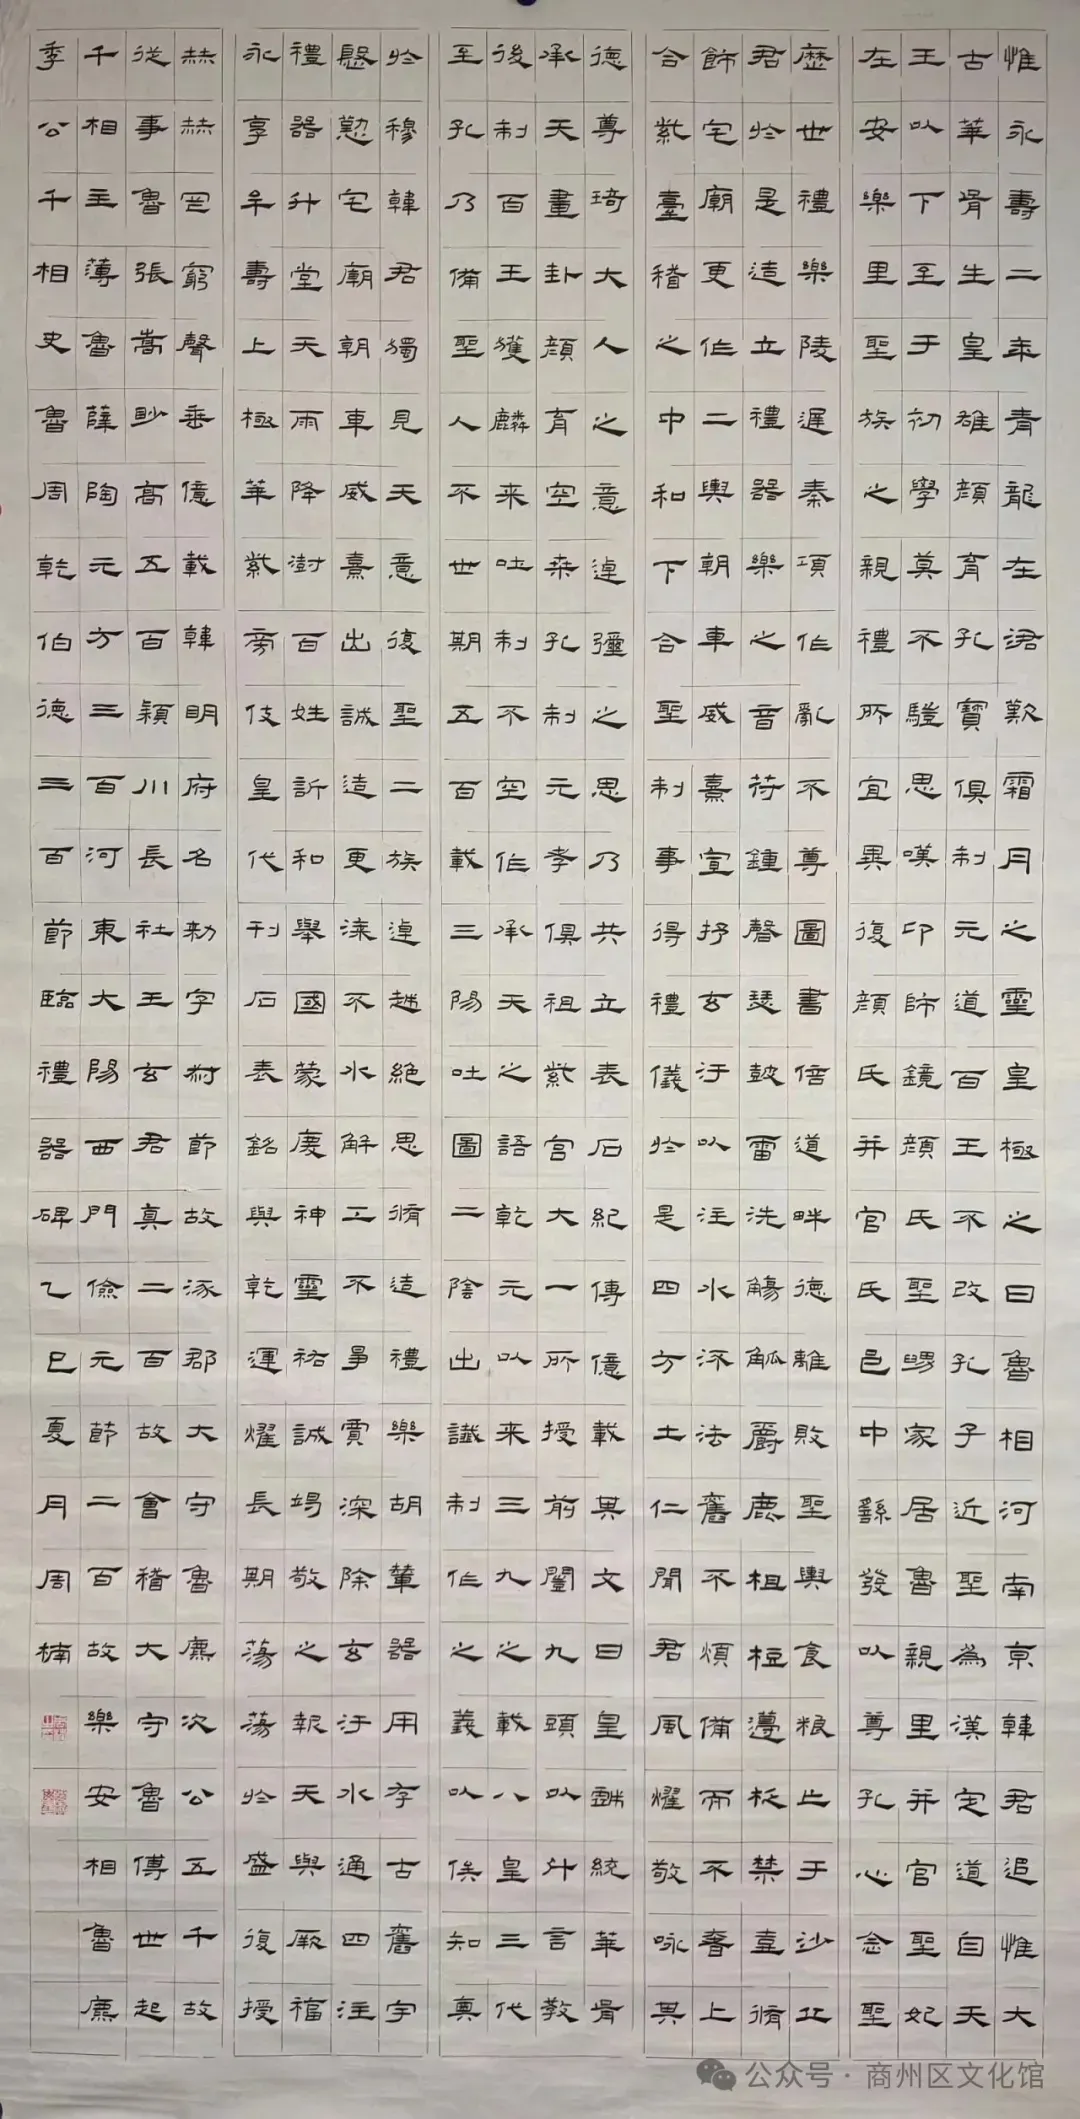 惟永壽二年青龍在涒歎霜月之靈皇極之日魯相河南京韓君追惟大
古華胥生皇雄顏育孔寶俱制元道百王不改孔子近聖為漢定道自天
王以下至于初學莫不騩思嘆卬師鏡顏氏聖舅家居魯親里并官聖妃
在安樂里聖族之親禮所宜異復顏氏并官氏邑中繇發以尊孔心念聖
歷世禮樂陵遲秦項作亂不尊圖書倍道畔德離敗聖輿食粮亡于沙丘
君於是造立禮器樂之音符鍾磬瑟鼓雷洗觴觚爵鹿柤梪籩柉禁壺脩
飾宅廟更作二輿朝車威熹宣抒玄汙以注水流法舊不煩備而不奢上
合紫臺稽之中和下合聖制事得禮儀於是四方土仁聞君風燿敬咏其
德尊琦大人之意逴彌之思乃共立表石紀傳億載其文曰皇戲統華胥
承天畫卦顏育空桒孔制元孝俱祖紫宮大一所授前闓九頭以什言教
後制百王獲麟來吐制不空作承天之語乾元以來三九之載八皇三代
至孔乃備聖人不世期五百載三陽吐圖二陰出讖制作之義以俟知奧
於穆韓君獨見天意復聖二族逴越絕思脩造禮樂胡輦器用存古舊宇
慇懃宅廟朝車威熹出誠造更漆不水解工不爭賈深除玄汙水通四注
禮器升堂天雨降澍百姓訢和舉國蒙慶神靈祐誠竭敬之報天與厥福
永享牟壽上極華紫旁伎皇代刊石表銘與乾運燿長期蕩蕩於盛復授
赫赫罔窮聲垂億載韓明府名勑字叔節故涿郡大守魯麃次公五千故
從事魯張嵩眇高五百穎川長社王玄君真二百故會稽大守魯傅世起
千相主薄魯薛陶元方三百河東大陽西門儉元節二百故樂安相魯麃
季公千相史魯周乾伯德三百節臨禮器碑乙巳夏月周楠
公众号·商州区文化馆